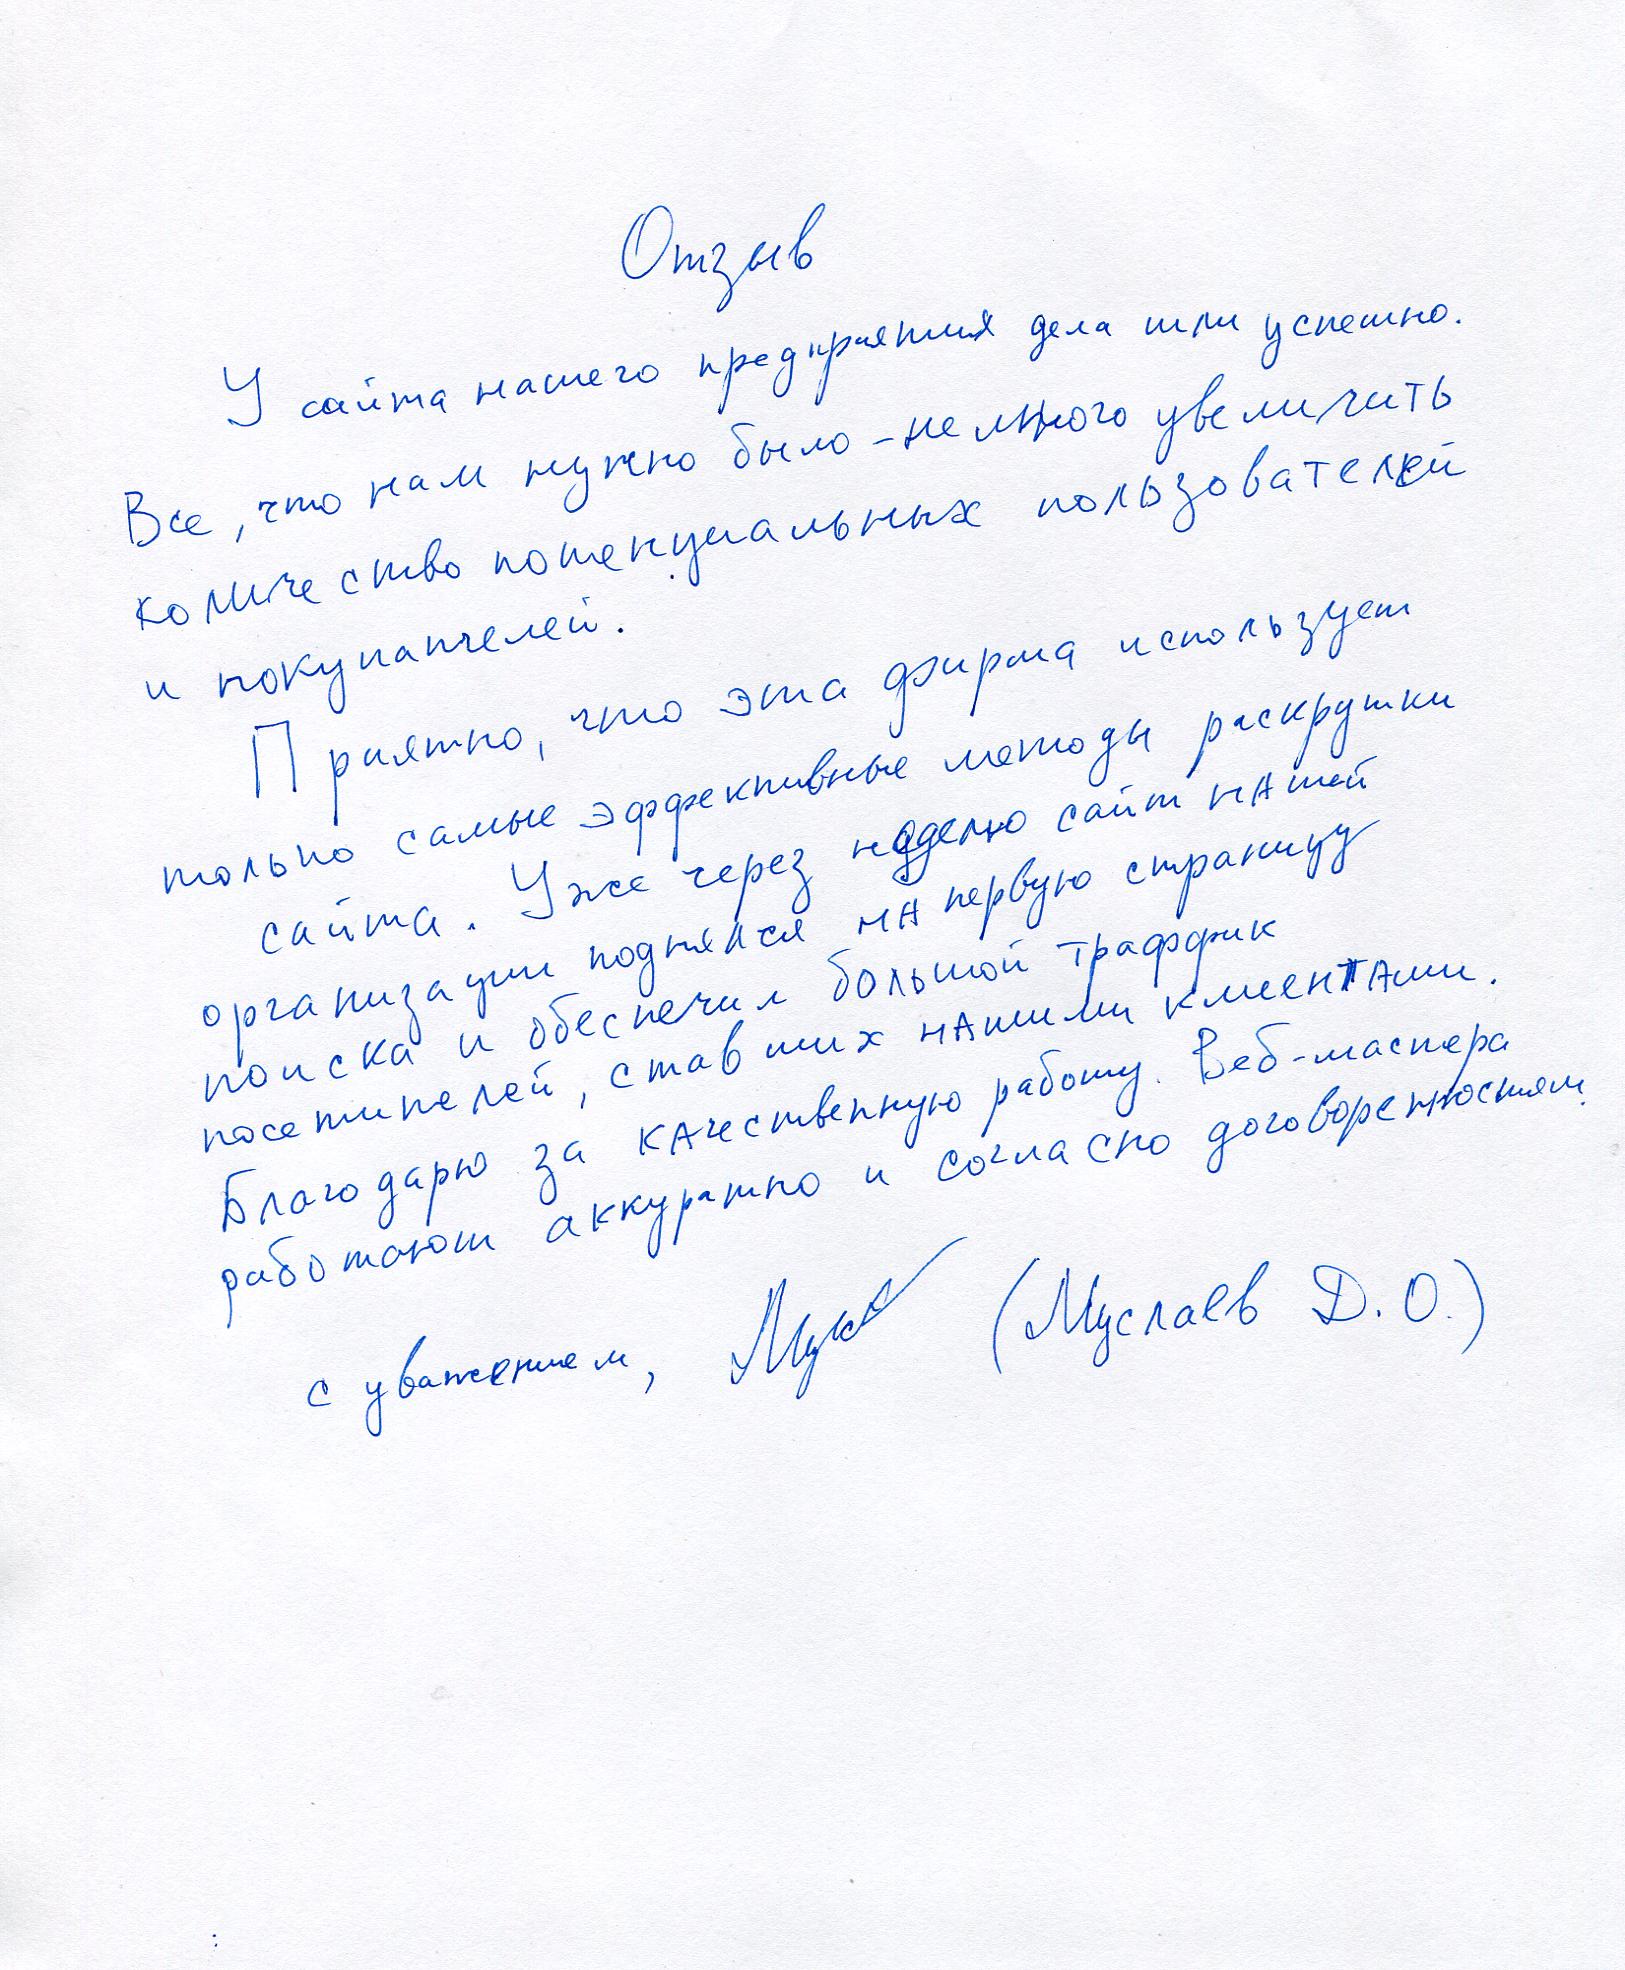 Отзыв
У сайта нашего предприятия дела шли успешно.
Все, что нам нужно было - немного увеличить
количество потенциальных пользователей
и покупателей.
Приятно, что эта фирма использует
только самые эффективные методы раскрутки
сайта. Уже через неделю сайт нашей
организации поднялся на первую страницу
поиска и обеспечил большой траффик
посетителей, ставших нашими клиентами.
Благодарю за качественную работу. Веб-мастера
работают аккуратно и согласно договоренностям.
с уважением, (Муслаев Д. О.)